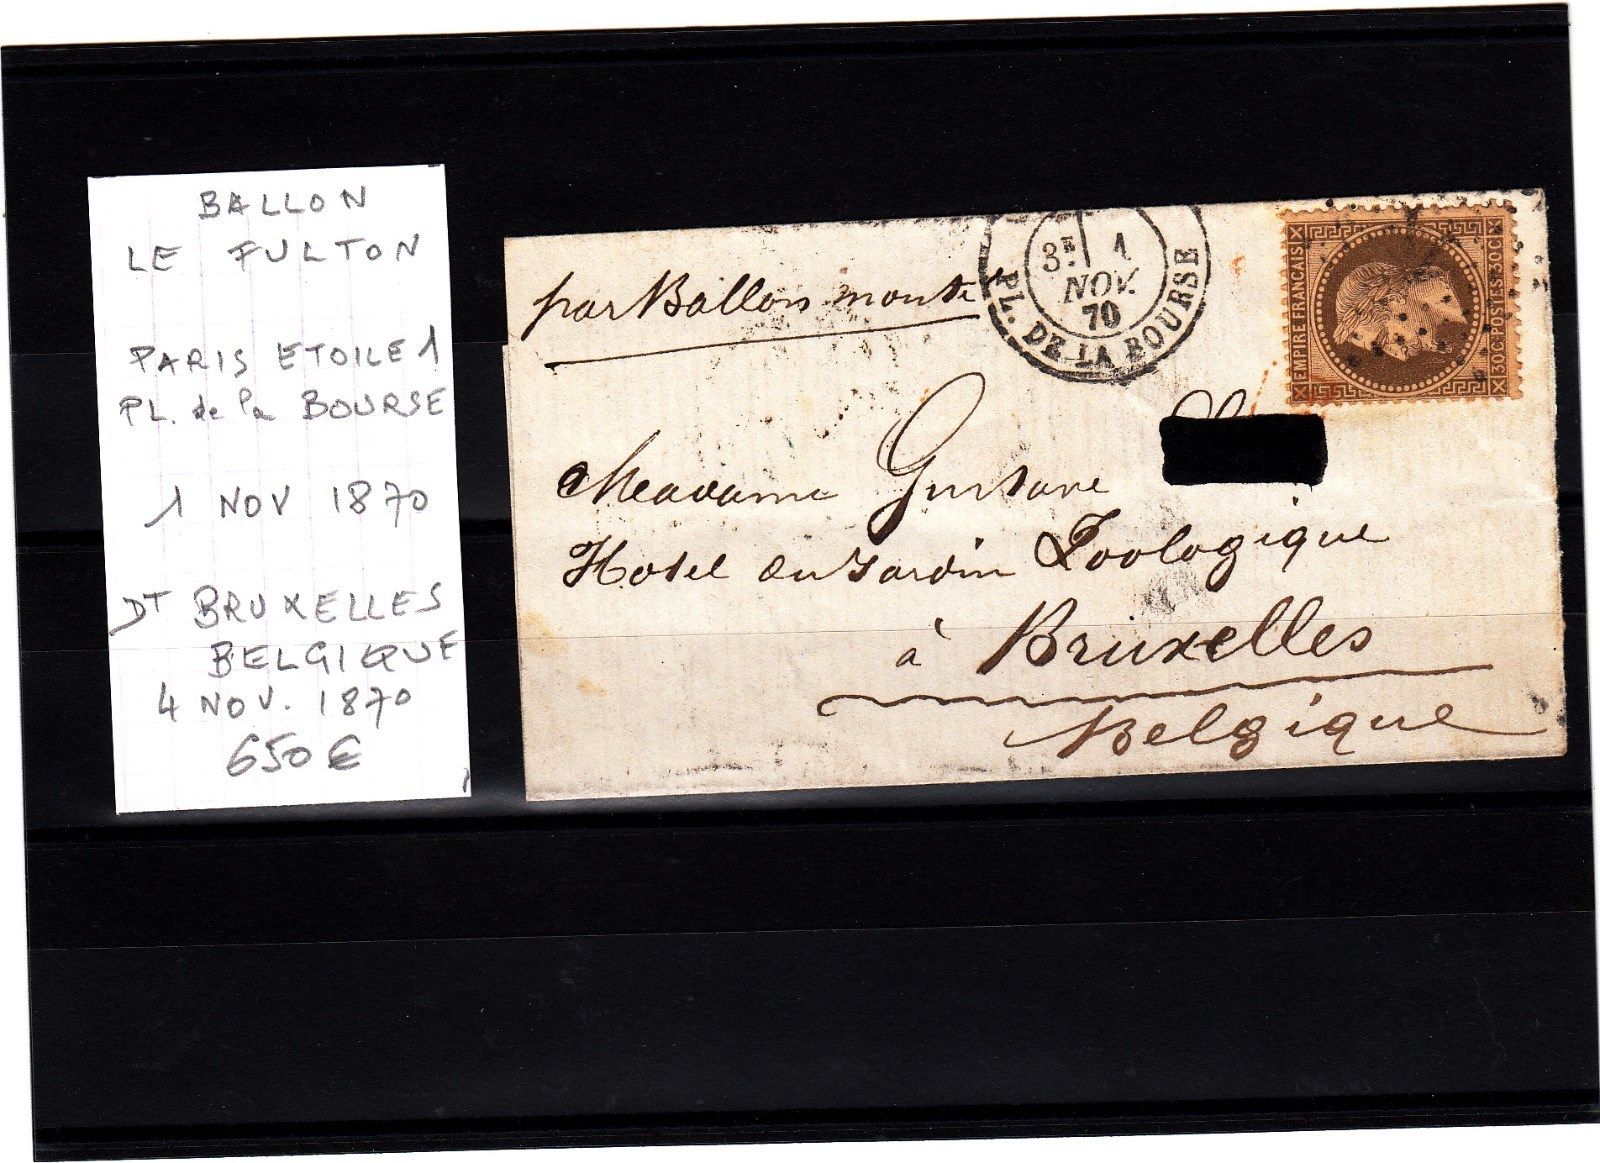 BALLON
LE FULTON
PARIS ETOILE 1
PL. de la BOURSE
1 NOV 1870
DT BRUXELLES
BELGIQUE
4 NOV. 1870
650€
par Ballon monté
3E 1
NOV.
70
PL. DE LA BOURSE
EMPIRE FRANÇAIS
30C POSTES 30C
Madame Gustave
Hotel du Jardin Zoologique
à Bruxelles
Belgique